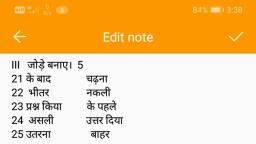 84% 3:38
Edit note
III जोड़े बनाए। 5
21 के बाद चढ़ना
22 भीतर नकली
23 प्रश्न किया के पहले
24 असली उत्तर दिया
25 उतरना बाहर